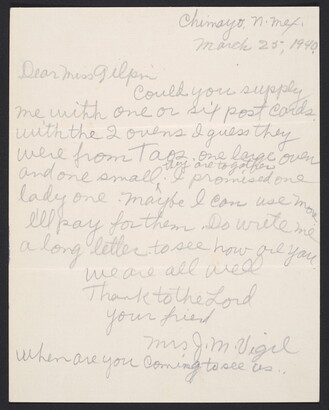 Chimayo, N. Mex.
March 25, 1940
Dear Miss Gilpin
Could you supply
me with one or six post cards
with the 2 ovens I guess they
were from Taos, one large oven
they are together
and one small. I promised one
lady one. Maybe I can use more
I'll pay for them. Do write me
a long letter to see how are you
we are all well
Thank to the Lord
your friend
Mrs J. M. Vigil
when are you coming to see us..